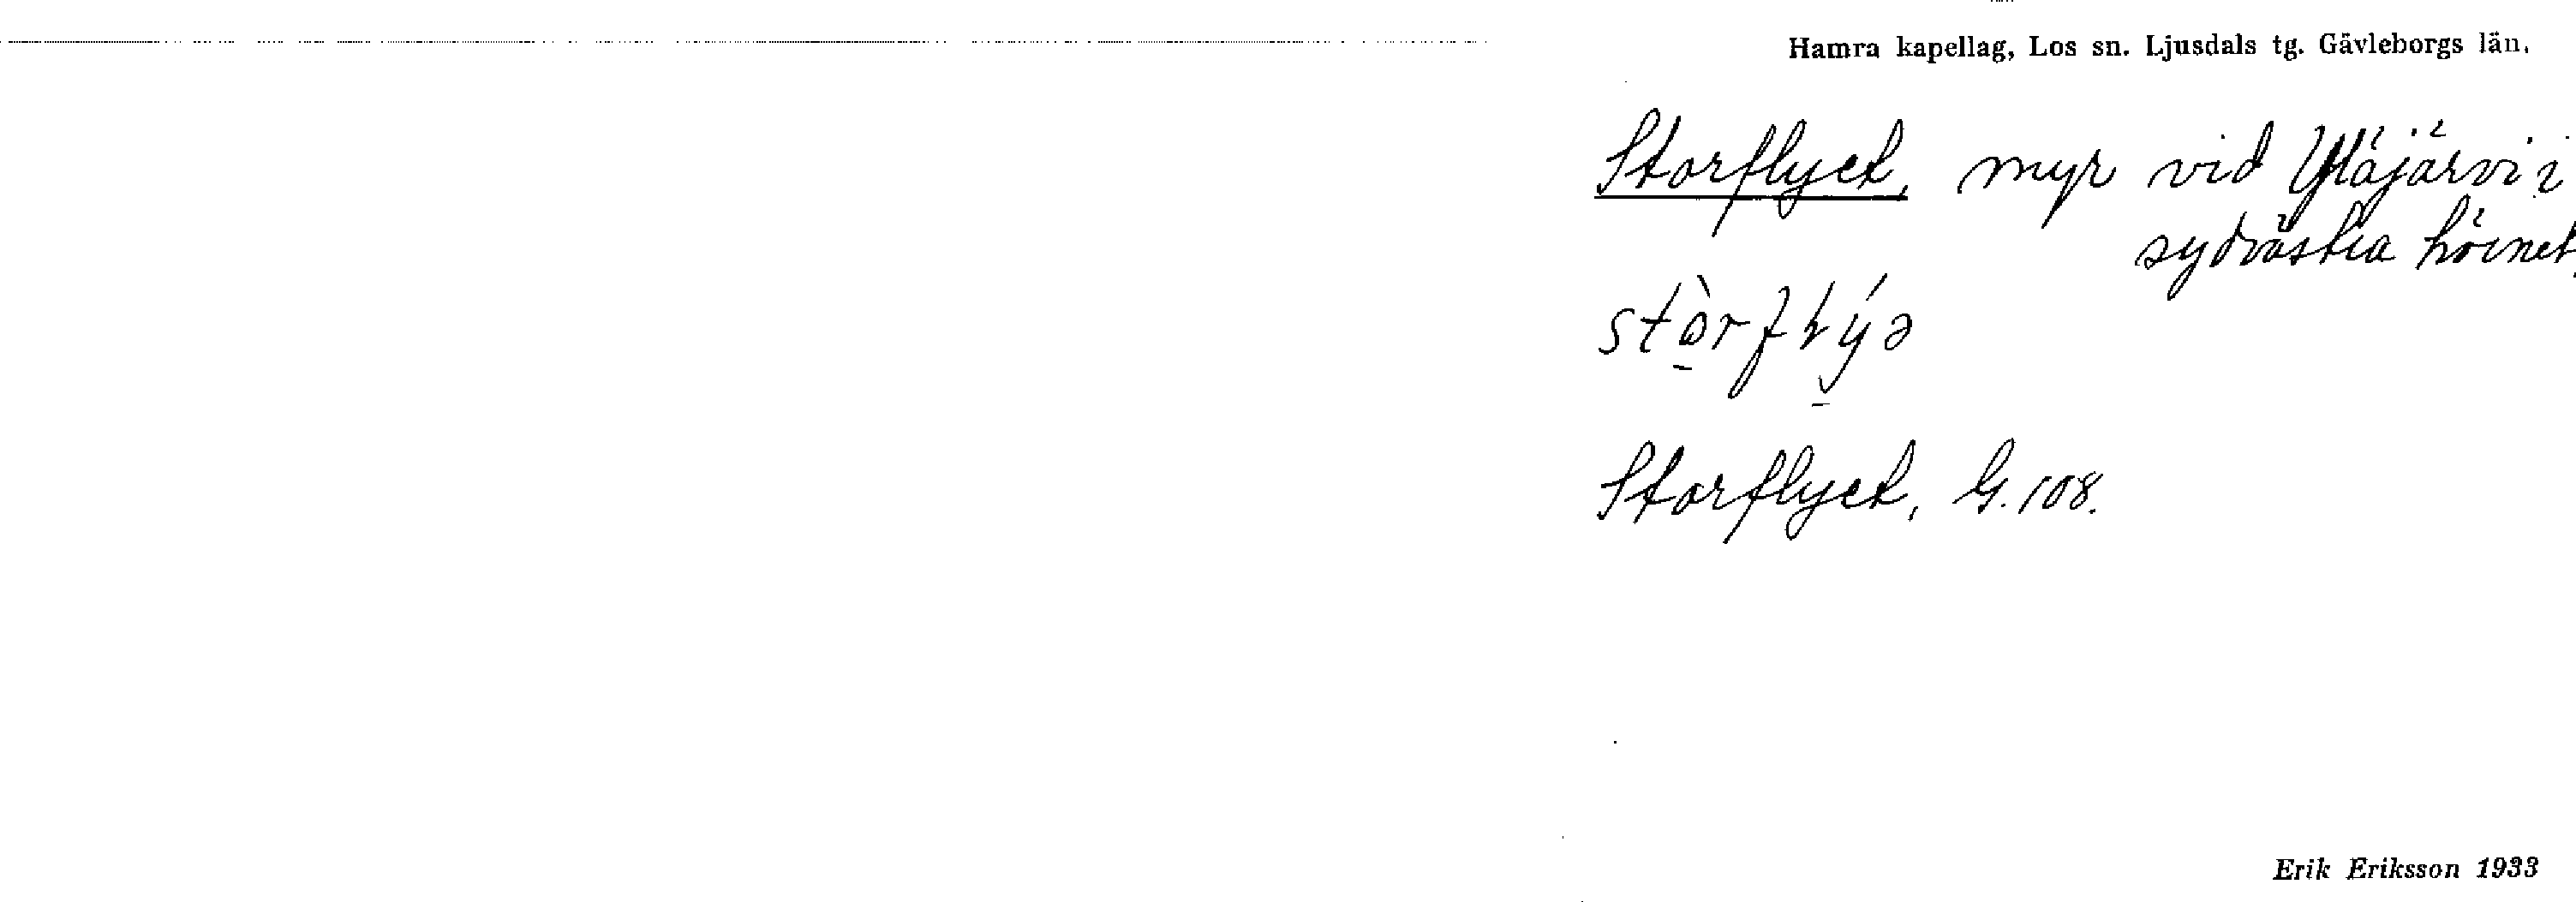 Hamra kapellag, Los sn. Ljusdals tg. Gävleborgs län.
Storflyet, myr vid Yläjärvi i
sydvästra hörnet.
Storflyet, G. 108.
Erik Eriksson 1933